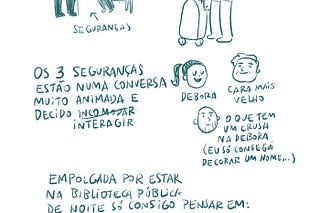 SEGURANÇAS
OS 3 SEGURANÇAS
ESTÃO NUMA CONVERSA
MUITO ANIMADA E
DECIDO INCOMODAR
INTERAGIR
DEBORA
CARA MAIS
VELHO
O QUE TEM
UM CRUSH
NA DEBORA
(EU SÓ CONSEGUI
DECORAR UM NOME...)
EMPOLGADA POR ESTAR
NA BIBLIOTECA PÚBLICA
DE NOITE SÓ CONSIGO PENSAR EM: